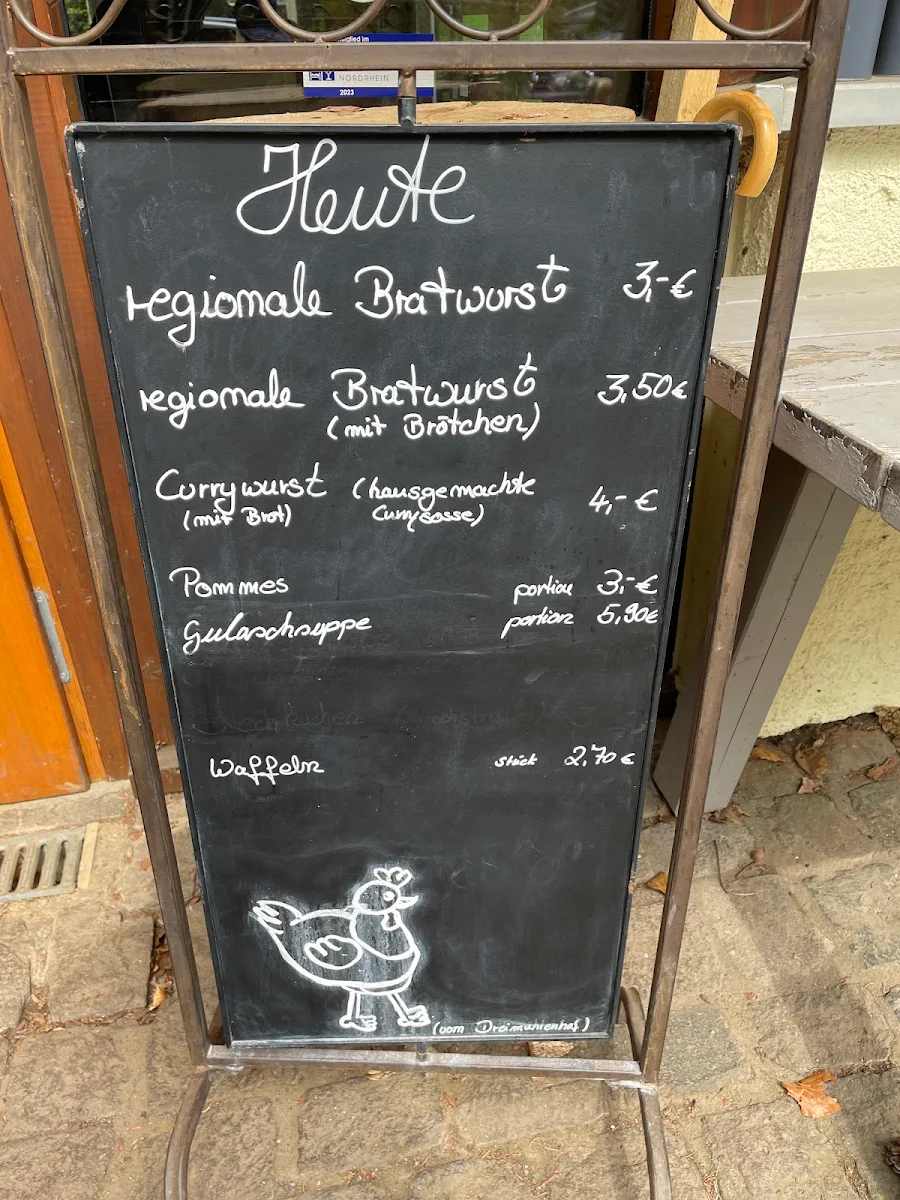 Mitglied im
NORDRHEIN
2023
Heute
regionale Bratwurst 3,-€
regionale Bratwurst 3,50€
(mit Brötchen)
Currywurst (hausgemachte 4,- €
(mit Brot) Currysosse)
Pommes portion 3,-€
Gulaschsuppe portion 5,90€
Waffeln stück 2,70 €
(vom Dreimühlenhof)